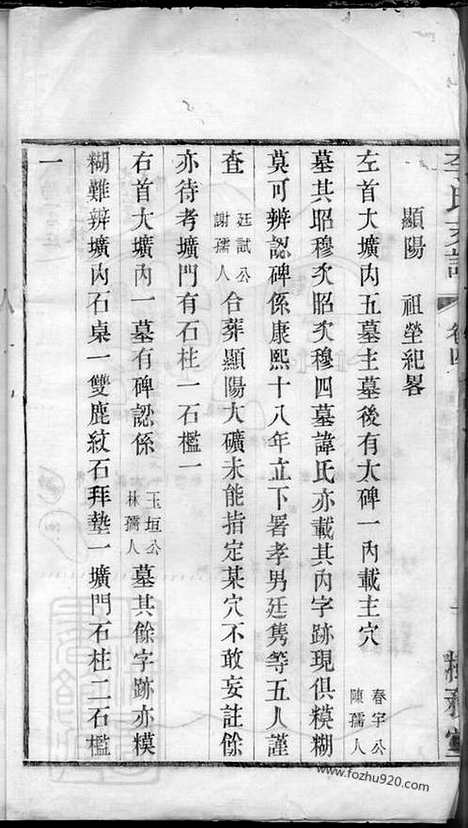 李氏支譜
卷四
顯陽 祖塋紀畧
左首大壙內五墓主墓後有大碑一內載主穴 春宇公 陳孺人
墓其昭穆次昭次穆四墓諱氏亦載其內字跡現俱糢糊
莫可辨認碑係康熙十八年立下署孝男廷雋等五人謹
查 廷試公 謝孺人 合葬顯陽大礦未能指定某穴不敢妄註餘
亦待考壙門有石柱一石檻一
右首大壙內一墓有碑認係 玉垣公 林孺人 墓其餘字跡亦糢
糊難辨壙內石桌一雙鹿紋石拜墊一壙門石柱二石檻
一
www.fozhu920.com